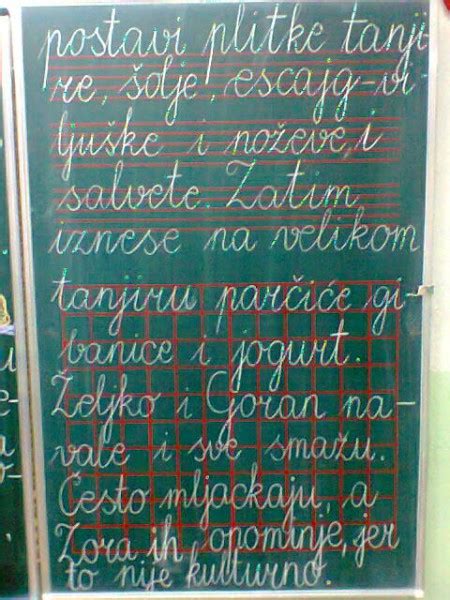 postavi plitke tanji-
re, šolje, escajg-vi-
ljuške i noževe, i
salvete. Zatim,
iznese na velikom
tanjiru parčiće gi-
banice i jogurt.
Željko i Goran na-
vale i sve smažu.
Često mljackaju, a
Zora ih opominje, jer
to nije kulturno.